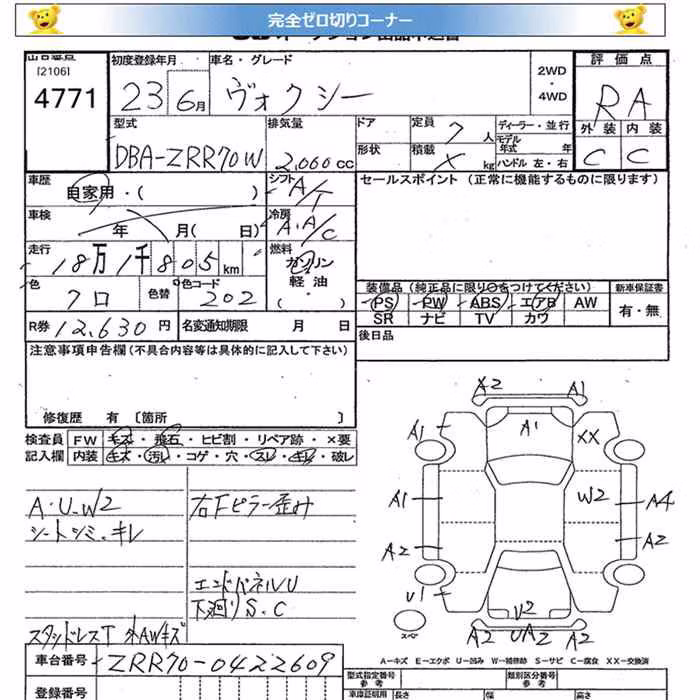 完全ゼロ切りコーナー
[2106]
4771
初度登録年月
23 6月
車名・グレード
ヴォクシー
2WD
4WD
評価点
RA
外装 内装
C C
型式
DBA-ZRR70W
排気量
2,000 cc
ドア
形状
定員 7 人
積載 X kg
ディーラー・並行
モデル
年式 年
ハンドル 左・右
車歴
自家用・( )
シフト
A/T
セールスポイント (正常に機能するものに限ります)
車検
年 月( 日)
冷房
A.A/C
走行
18万1千805km
燃料
ガソリン
軽油
・( )
色
クロ
色替
色コード
202
装備品(純正品に限り○をつけてください)
PS PW ABS エアB AW
SR ナビ TV カワ
新車保証書
有・無
R券 12,630円
名変通知期限 月 日
後日品
注意事項申告欄(不具合内容等は具体的に記入して下さい)
修復歴 有 〔箇所 〕
検査員
記入欄
FW キズ・飛石・ヒビ割・リペア跡・×要
内装 キズ・汚レ・コゲ・穴・スレ・キレ・破レ
A・U・W2
シートシミ、キレ
右Fピラー歪み
エンドパネルU
下廻りS.C
スタッドレスT 外AWキズ
A2 A1
A1 A1 XX
A1 W2 A4
A2 A2
U1 U2
スペア
A2 UA2 A2
A―キズ E―エクボ U―凹み W―補修跡 S―サビ C―腐食 XX―交換済
車台番号
ZRR70-0422609
登録番号
型式指定番号
参考
類別区分番号
参考
車庫証明用
長さ
幅
高さ